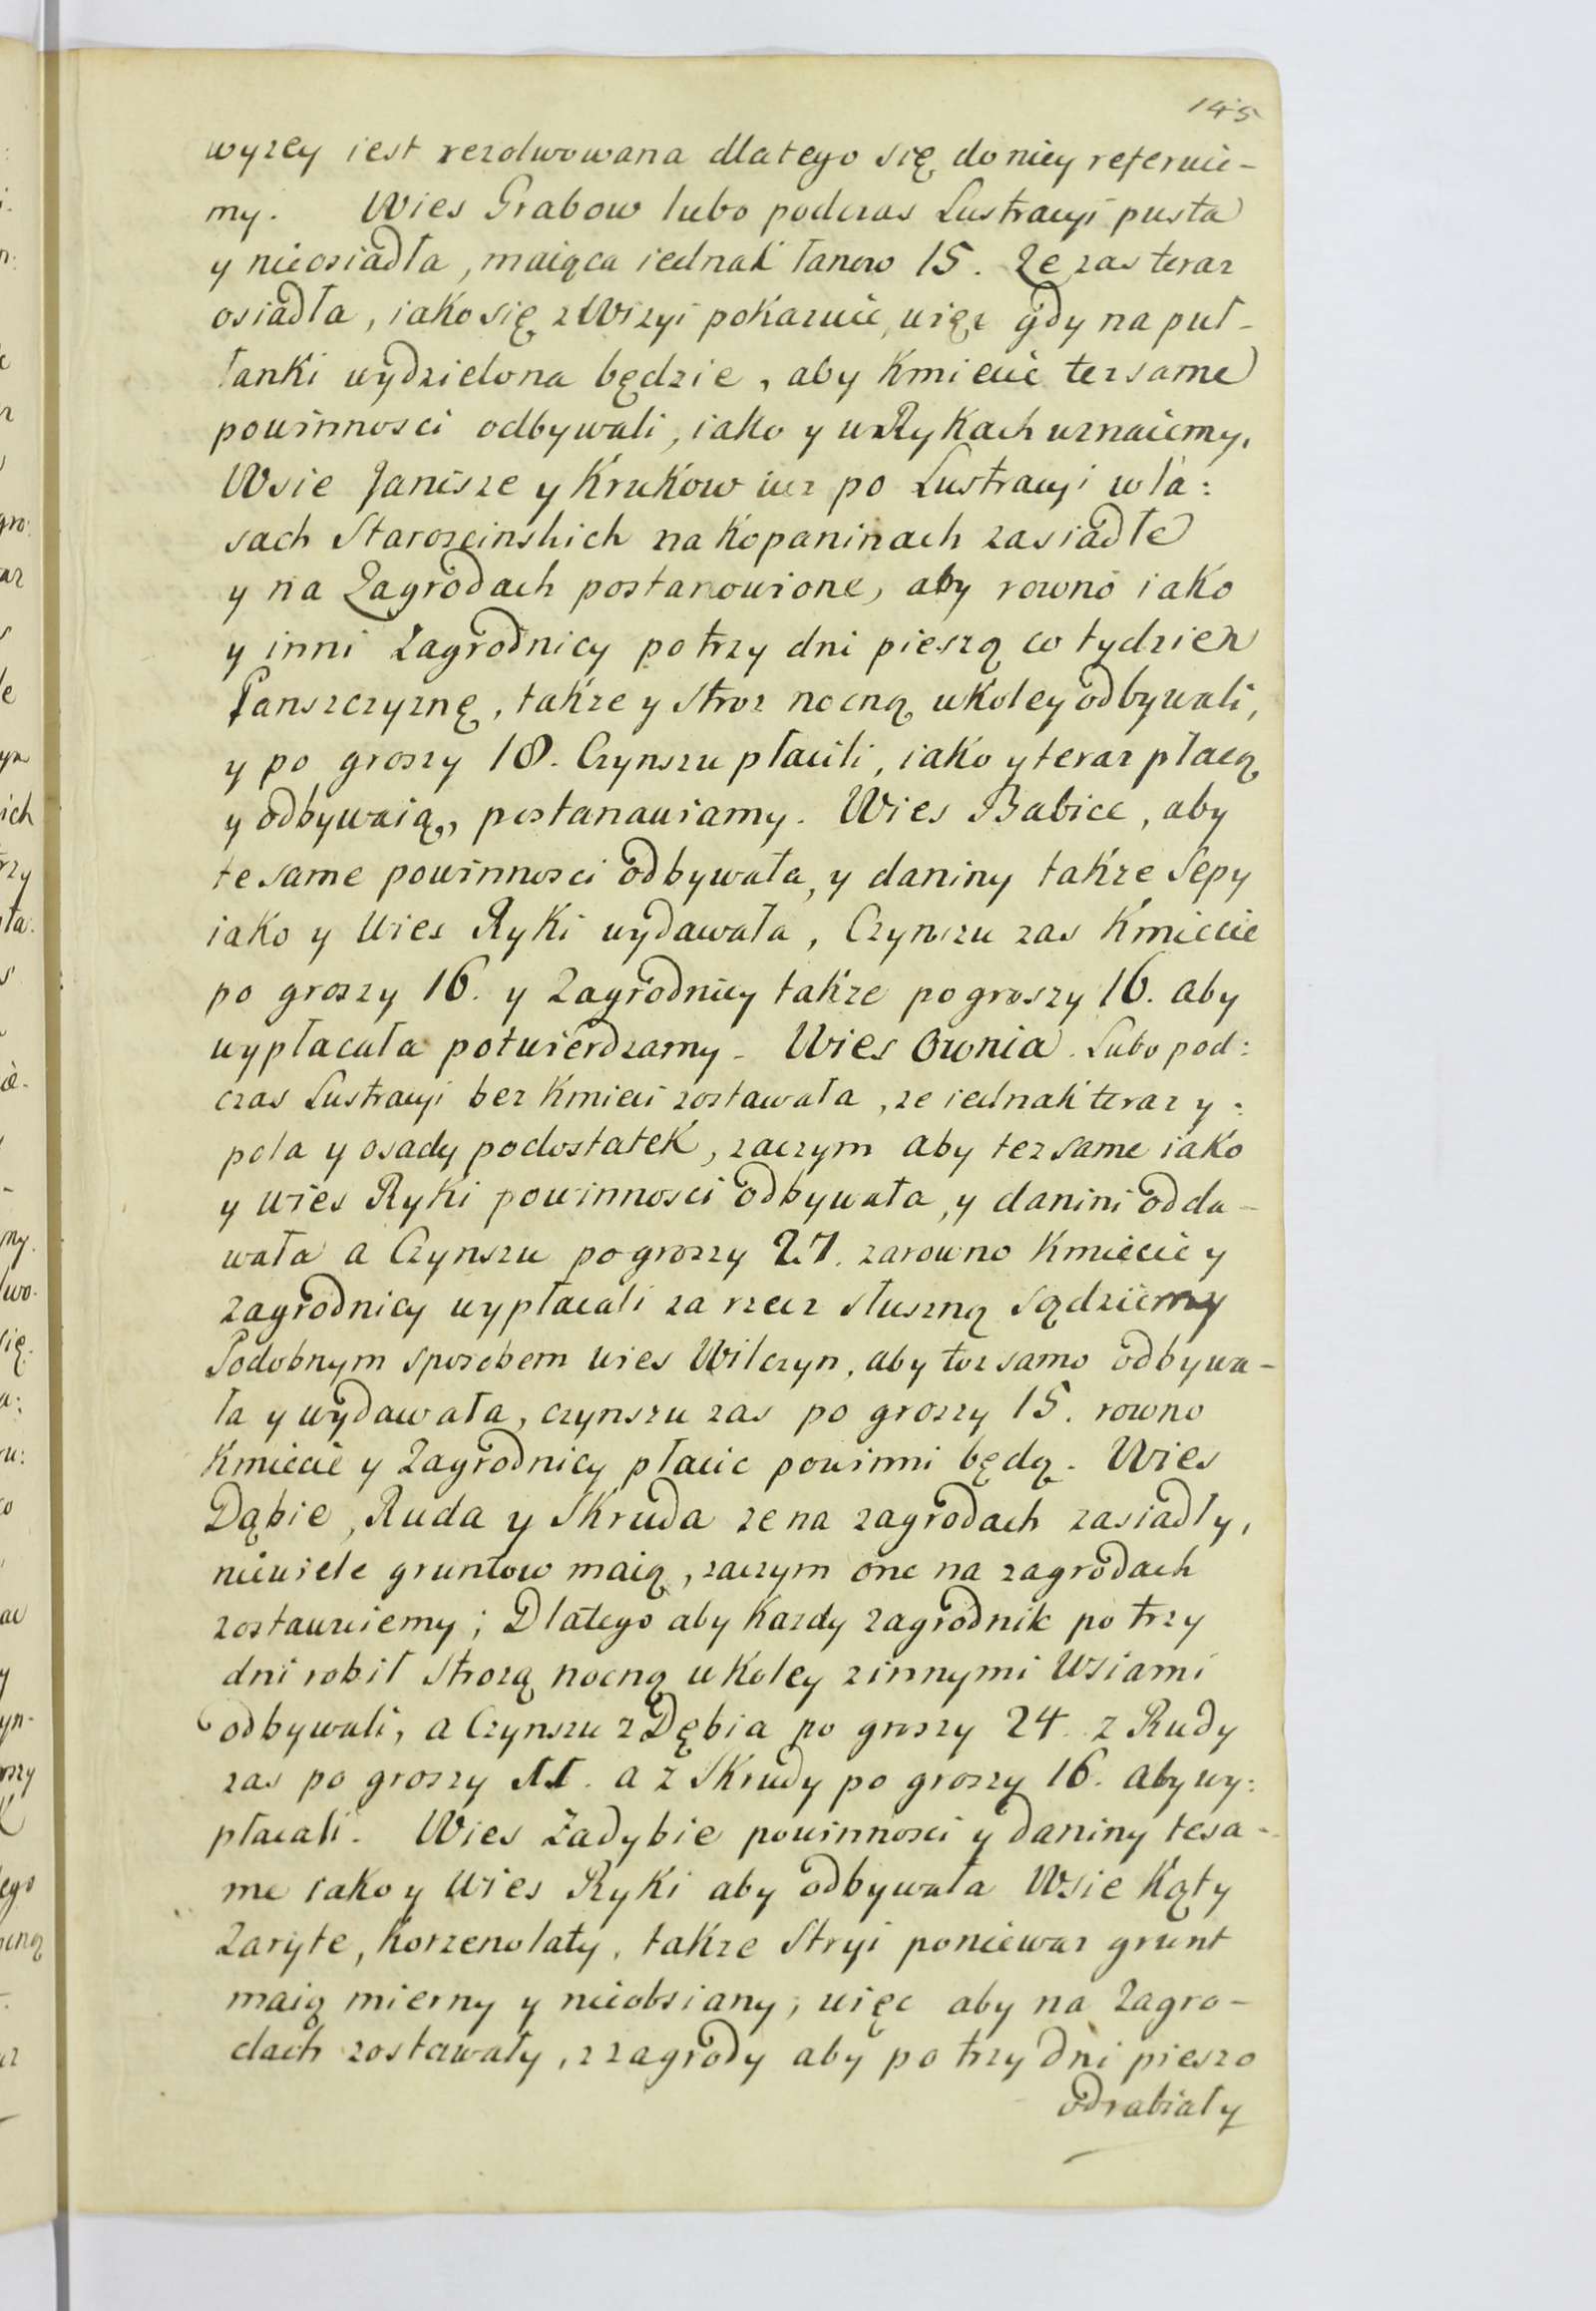 145
wyzey iest rezolwowana dlatego się do niey referuie-
my. Wies Grabow lubo podczas Lustracyi pusta
y nieosiadła, maiąca iednak łanow 15. Ze zas teraz
osiadła, iako się z Wizyi pokazuie, więc gdy na puł-
łanki wydzielona będzie, aby Kmiecie tez same
powinnosci odbywali, iako y w Rykach uznaiemy,
Wsie Janisze y Krukow iuz po Lustracyi w la:
sach Staroscinskich na Kopaninach zasiadłe
y na Zagrodach postanowione, aby rowno iako
y inni Zagrodnicy po trzy dni pieszą co tydzien
Panszczyznę, takze y stroz nocną w koley odbywali,
y po groszy 18. Czynszu płacili, iako y teraz płacą
y odbywaią, postanawiamy. Wies Babice, aby
te same powinnosci odbywała, y daniny takze Sepy
iako y Wies Ryki wydawała, Czynszu zas Kmiecie
po groszy 16. y Zagrodnicy takze po groszy 16. aby
wypłacała potwierdzamy. Wies Ownia. Lubo pod:
czas Lustracyi bez Kmieci zostawała, ze iednak teraz y:
pola y osady podostatek, zaczym aby tez same iako
y wies Ryki powinnosci odbywała, y danini odda-
wała a Czynszu po groszy 27. zarowno Kmiecie y
zagrodnicy wypłacali za rzecz słuszną sądziemy
Podobnym sposobem wies Wilczyn, aby toz samo odbywa-
ła y wydawała, czynszu zas po groszy 15. rowno
Kmiecie y Zagrodnicy płacic powinni będą. Wies
Dąbie, Ruda y Skruda ze na zagrodach zasiadły,
niewiele gruntow maią, zaczym one na zagrodach
zostawuiemy; Dlatego aby kazdy zagrodnik po trzy
dni robił strozą nocną w koley z innymi Wsiami
odbywali, a Czynszu z Dębia po groszy 24. z Rudy
zas po groszy 11. a z Skrudy po groszy 16. aby wy:
płacali. Wies Zadybie powinnosci y daniny tesa-
me iako y Wies Ryki aby odbywała Wsie Kąty
Zaryte, Korzenołaty, takze Stryi poniewaz grunt
maią mierny y nieobsiany, więc aby na Zagro-
dach zostawały, z zagrody aby po trzy dni pieszo
odrabiały